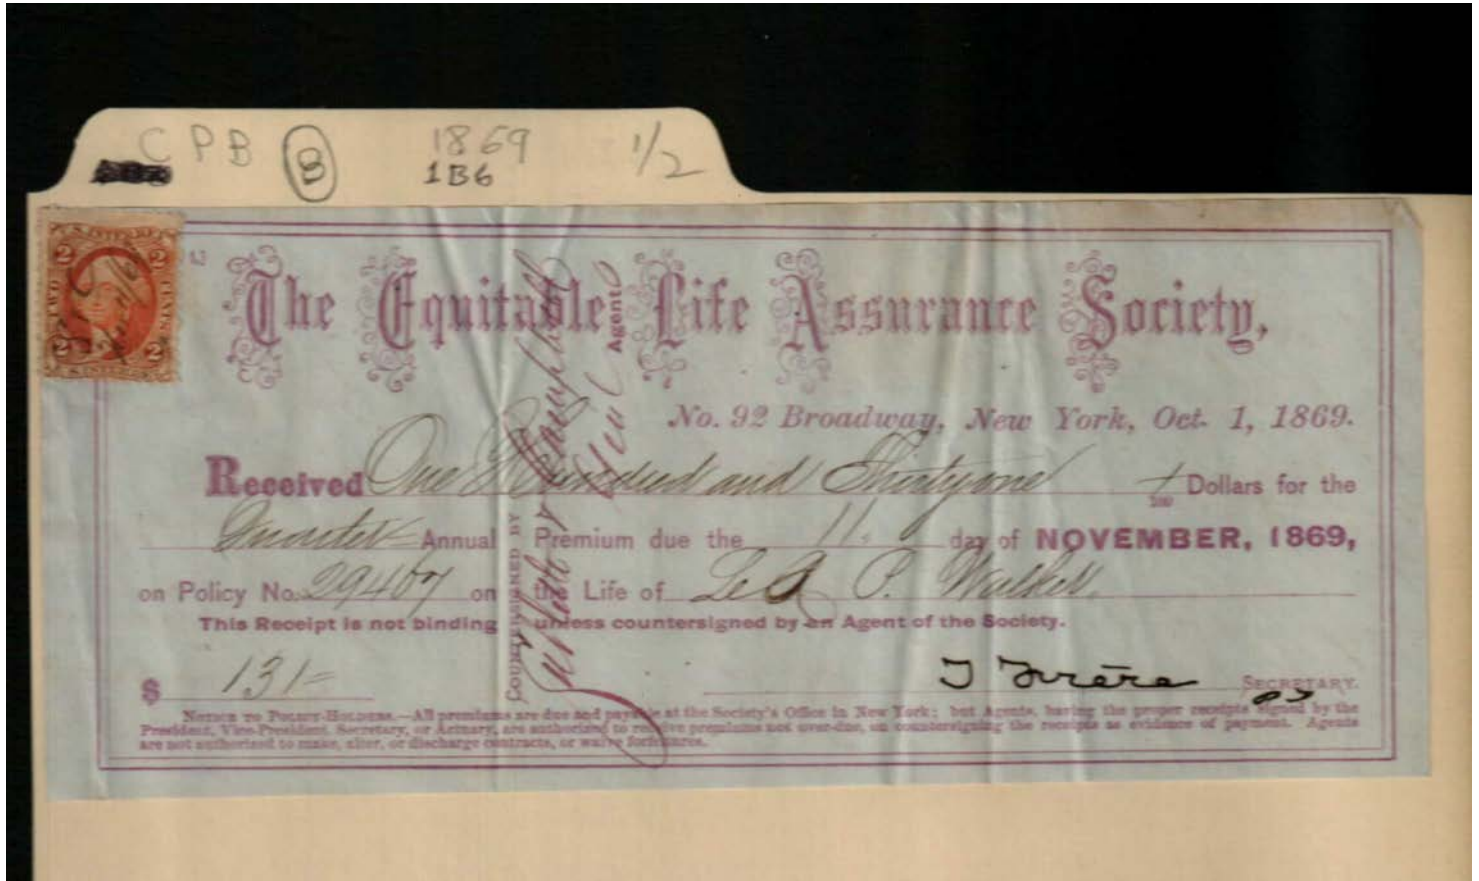 C P B B 1869 1/2
1B6
U.S. INTER. REV.
2 2
TWO CENTS
2 2
The Equitable Life Assurance Society,
No. 92 Broadway, New York, Oct. 1, 1869.
Received One Hundred and Thirty one /100 Dollars for the
Quarter Annual Premium due the 11. day of NOVEMBER, 1869,
on Policy No. 29467 on the Life of Le P. Walker.
This Receipt is not binding unless countersigned by an Agent of the Society.
$ 131= SECRETARY.
NOTICE TO POLICY-HOLDERS.—All premiums are due and payable at the Society's Office in New York; but Agents, having the proper receipts signed by the
President, Vice-President, Secretary, or Actuary, are authorized to receive premiums not over-due, on countersigning the receipts as evidence of payment. Agents
are not authorized to make, alter, or discharge contracts, or waive forfeitures.
COUNTERSIGNED BY
Agent